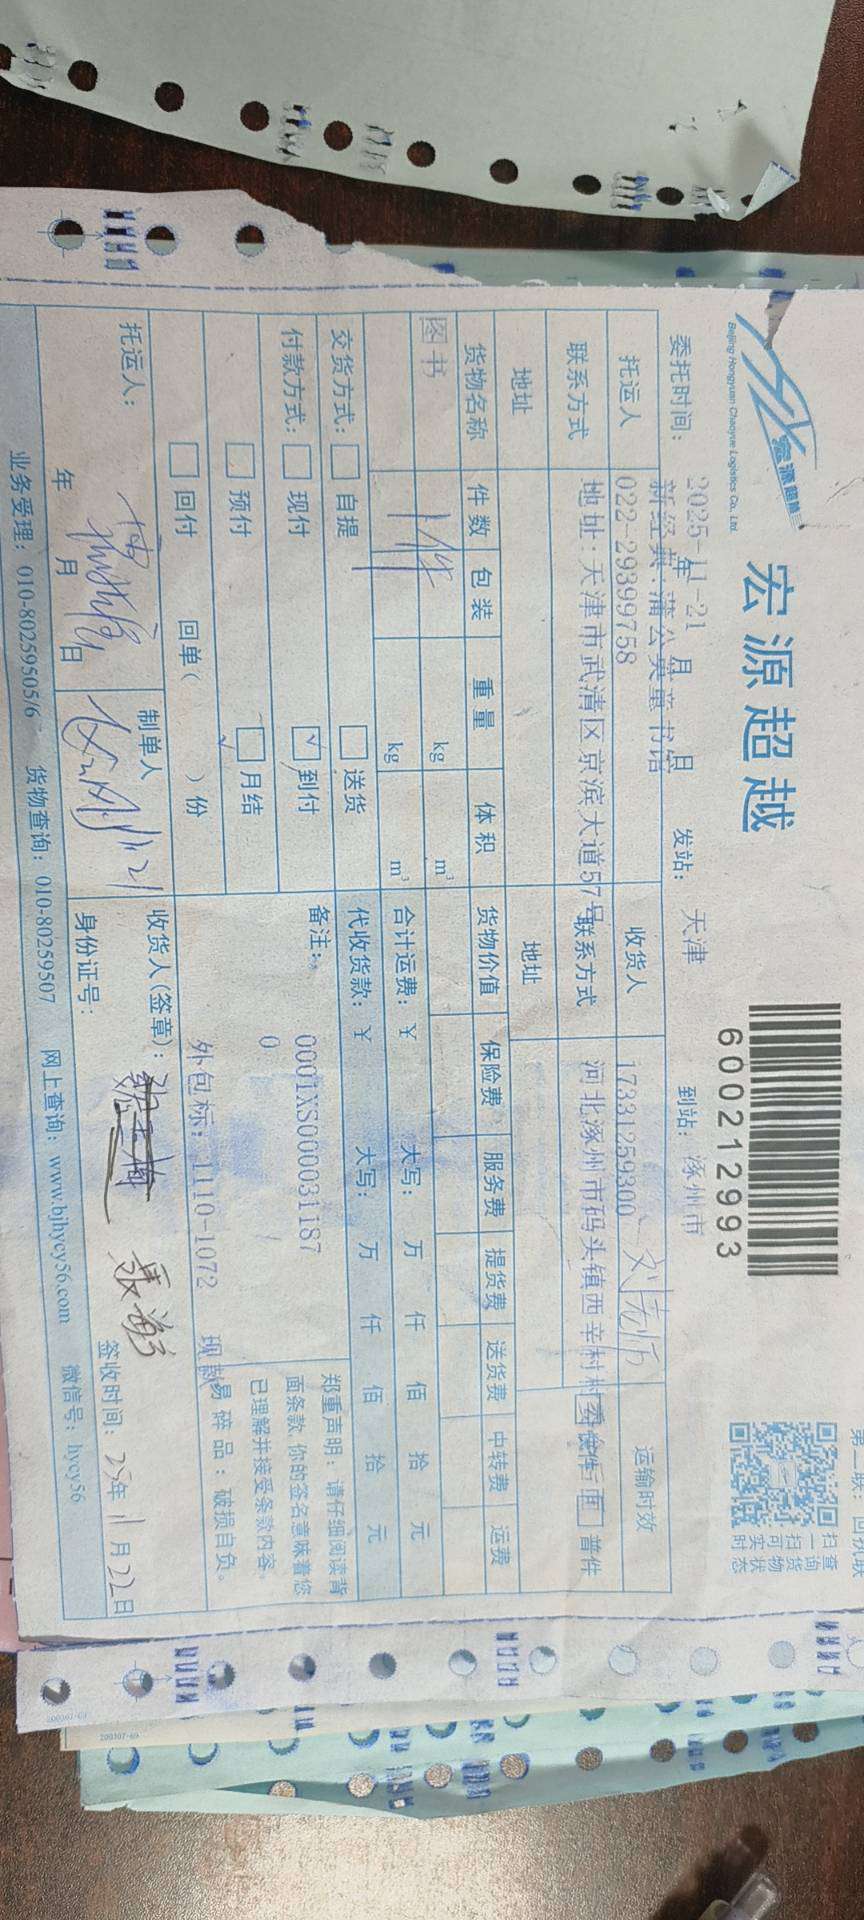 宏源超越
Beijing Hongyuan Chaoyue Logistics Co., Ltd.
宏源超越
600212993
扫查
一询
扫货
可物
实状
时态
第二联：回执联
委托时间： 2025-11-21 年 月 日 发站： 天津 到站： 涿州市
托运人 新经典·蒲公英童书馆 收货人 运输时效
联系方式 022-29399758 联系方式 17331259300 刘老师
地址 地址：天津市武清区京滨大道57号 地址 河北涿州市码头镇西辛村村委 快件 普件
货物名称 件数 包装 重量 体积 货物价值 保险费 服务费 提货费 送货费 中转费 运费
图书 1件 kg m³
合计运费：￥ 大写： 万 仟 佰 拾 元
kg m³
代收货款：￥ 大写： 万 仟 佰 拾 元
交货方式： 自提 送货
付款方式： 现付 √ 到付
预付 月结 √
回付 回单( )份
备注： 0001XS000031187
0
外包标：1110-1072
郑重声明：请仔细阅读背
面条款，你的签名意味着您
已理解并接受条款内容。
易碎品：破损自负。
托运人：
年 月 日
制单人
11.21
收货人(签章)：
身份证号：
签收时间： 25年 11月 22日
业务受理：010-80259505/6 货物查询：010-80259507 网上查询：www.bjhycy56.com 微信号：hycy56
200307-69